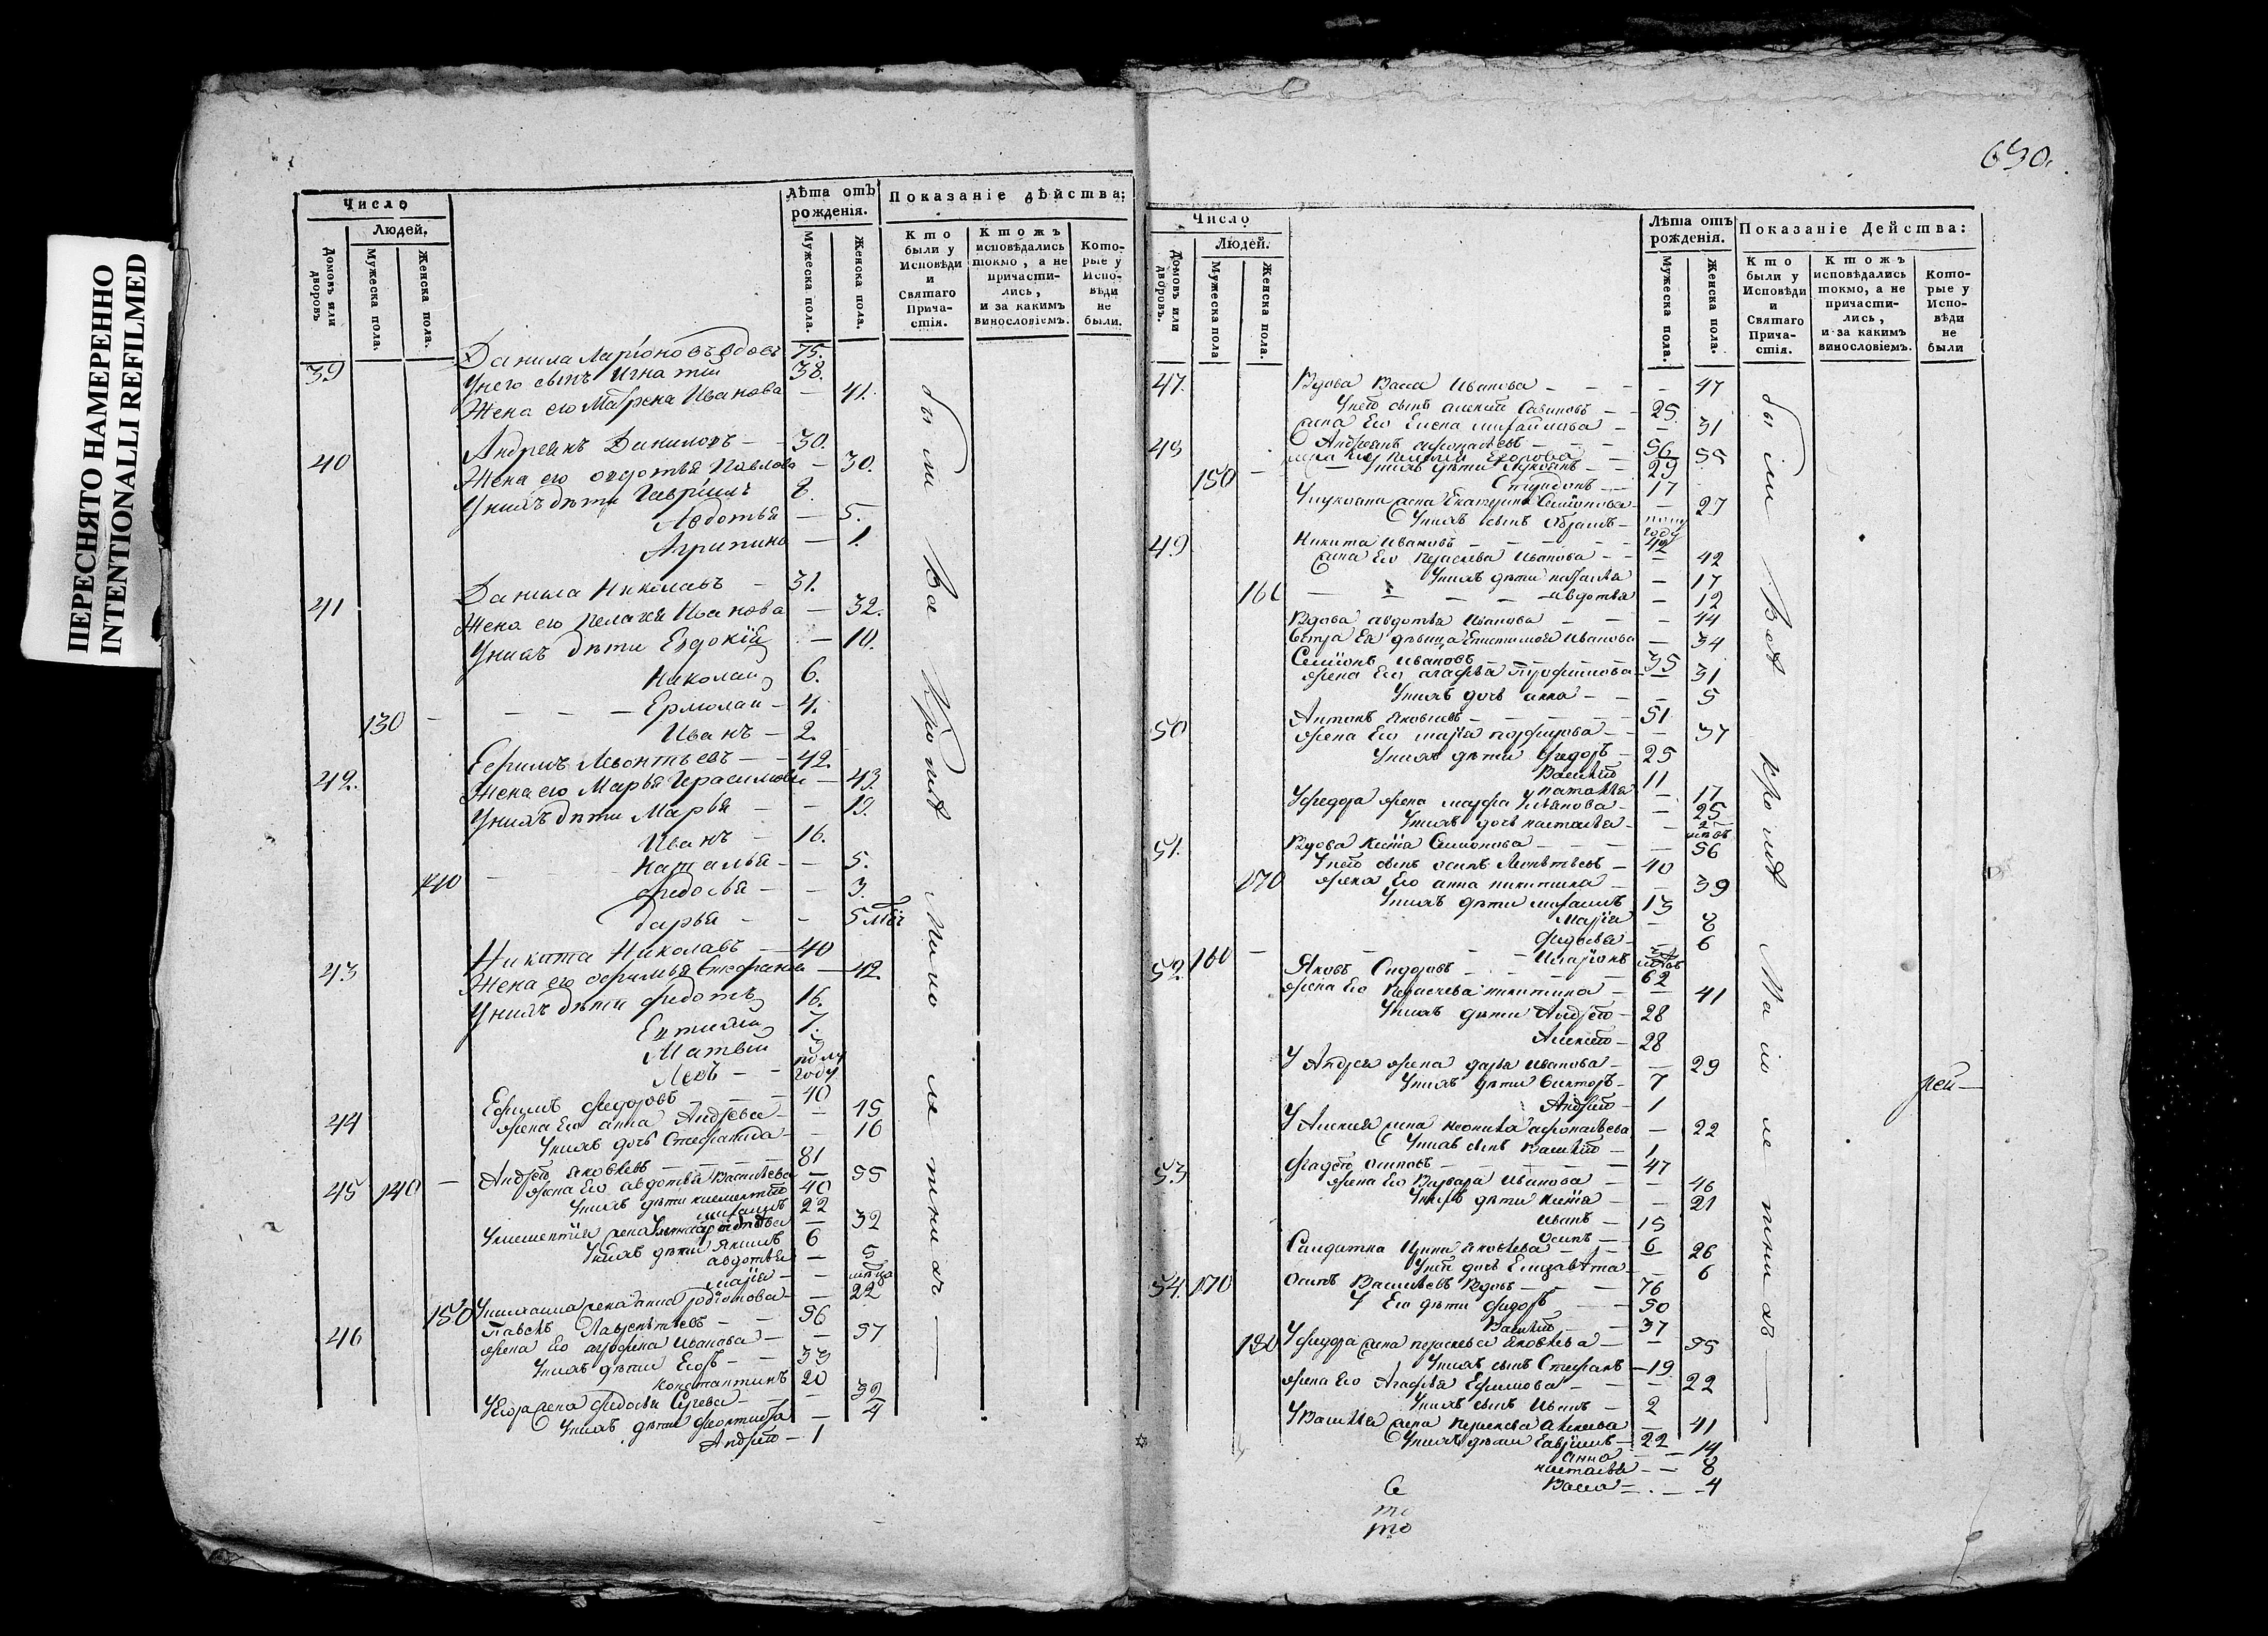 ПЕРЕСНЯТО НАМЕРЕННО
INTENTIONALLI REFILMED
Число
Людей.
Домовъ или дворовъ
Мужеска пола.
Женска пола.
Лѣта отъ рожденія.
Мужеска пола.
Женска пола.
Показаніе дѣйства:
Кто были у Исповѣди и Святаго Прича-стія.
Ктожъ исповѣдались токмо, а не причасти-лись, и за какимъ винословіемъ.
Кото-рые у Испо-вѣди не были.
Данила Ларіоновъ вдовъ 75.
39 Унего сынъ Игнатій 38.
Жена его Матрена Иванова — 41.
Андреянъ Даниловъ — 30.
40 Жена его овдотья Павлова — 30.
Унихъ дѣти Гаврила 8.
Авдотья — 5.
Агрипина — 1.
Данила Николавъ — 31.
41 Жена его Пелагея Иванова — 32.
Унихъ дѣти Евдокій — 10.
Николаи 6.
130 — — — Ермолаи — 4.
Иванъ — 2.
Ефимъ Левонтьевъ — 42.
42. Жена его Марья Герасимова — 43.
Унихъ дѣти Марья — — 19.
Иванъ — 16.
Наталья — — 5.
140 — Федосья — — 3.
дарья — — 5 мѣс
Никита Николавъ — 40
43 Жена его офимья Стефанова — 42.
Унихъ дѣти Федотъ 16.
7.
Матвѣи 3
Левъ — — полу году
Ефимъ Федоровъ — — 40
44 жена Его анна Андреева — — 45
Унихъ дочь Стефанида — — 16
Андрей Яковлевъ — — — 81
45 140 — жена Его авдотья Васильева — 55
Унихъ дѣти Климентій 40
михаилъ 22
— 32
Унихъ дѣти Якимъ 6
авдотья — 5
марья — —
150 Умихаила жена анна Родіонова — — 22
Павелъ Лаврентьевъ — — 56
46 жена Его агрофена Иванова — — 57
Унихъ дѣти Егоръ — — 33
Константинъ 20
УЕгора жена Федосья — — 32
Унихъ дѣти — 4
Андрей — 1
были Вси Кромѣ Мало ле тнихъ —
690.
Число
Людей.
Домовъ или дворовъ.
Мужеска пола
Женска пола.
Лѣта отъ рожденія.
Мужеска пола.
Женска пола.
Показаніе Действа:
Кто были у Исповѣди и Святаго Прича-стія.
Ктожъ исповѣдались токмо, а не причасти-лись, и за какимъ винословіемъ.
Кото-рые у Испо-вѣди не были
47. Вдова Васса Иванова — — — — 47
Унеей сынъ алексѣй Савиновъ — — 25.
жена Его Елена михайлова — — 31
48 Андреянъ афонасьевъ — — — 56
жена Его Егорова — 55
150 — Унихъ дѣти Лукьянъ — — 29
Спиридонъ — — 17
Улукьяна жена Екатерина Семіонова — — 27
Унихъ сынъ Абрамъ — полу году
49 Никита Ивановъ — — — — 42
жена Его Прасковья Иванова — — — 42
Унихъ дѣти наталья — 17
160 — — — — авдотья — 12
Вдова авдотья Иванова — — — — 44
Сестра Ея дѣвица Епистимея Иванова — 34
Семіонъ Ивановъ — — — — 35
жена Его агафья Трофимова — — 31
Унихъ дочь анна — — — 5
50 Антонъ Яковлевъ — — — — 51
жена Его марья порфирова — — — 37
Унихъ дѣти Федоръ — 25
Василей 11
наталья — 17
Уфедора жена марфа Ульянова — — 25
Унихъ дочь настасья — — 2 мѣсъ
51. Вдова Ксенія Симонова — — — — 56
Унеей сынъ осипъ Леонтьевъ — 40
170 жена Его анна никитина — — 39
Унихъ дѣти михаилъ 13
марія — 8
Федосья — — 6
52. 160 — — — — Иларіонъ
Яковъ Сидоровъ — — — — 62
жена Его Прасковья никитина — — 41
Унихъ дѣти Андрей — 28
Алексѣй — 28
УАндрея жена дарья Иванова — — 29
Унихъ дѣти Викторъ — 7
Андрей — 1
рей —
УАлексея жена неонила афонасьева — 22
Унихъ сынъ Василей — 1
53 Фадѣй осиповъ — — — — 47
жена Его Варвара Иванова — — 46
Унихъ дѣти Ксенія — — 21
Иванъ — 15
осипъ — 6
Салдатка Ирина Яковлева — — — 26
Унеей дочь Елизавѣта — — 6
54. 170 осипъ Васильевъ вдовъ — — — 76
У Его дѣти Федоръ — — 50
Василей — — 37
180 Уфедора жена прасковья Яковлева — — 55
Унихъ сынъ Стефанъ — 19
жена Его Агафья Ефимова — — — 22
Унихъ сынъ Иванъ — 2
УВасилья жена прасковья Алексѣева — 41
Унихъ дѣти Гавріилъ — 22
анна — — 14
настасья — — 8
Васса — — 4
были Вси кромѣ Мало ле тнихъ —
С
то
то